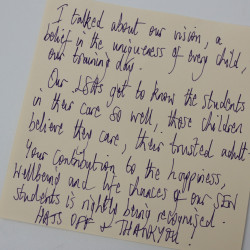 I talked about our vision, a
belief in the uniqueness of every child,
our training day.
Our LSAs get to know the students
in their care so well, those children
believe they care, their trusted adult.
Your contribution to the happiness,
wellbeing and life chances of our
students is rightly being recognised.
HATS OFF & THANKYOU!